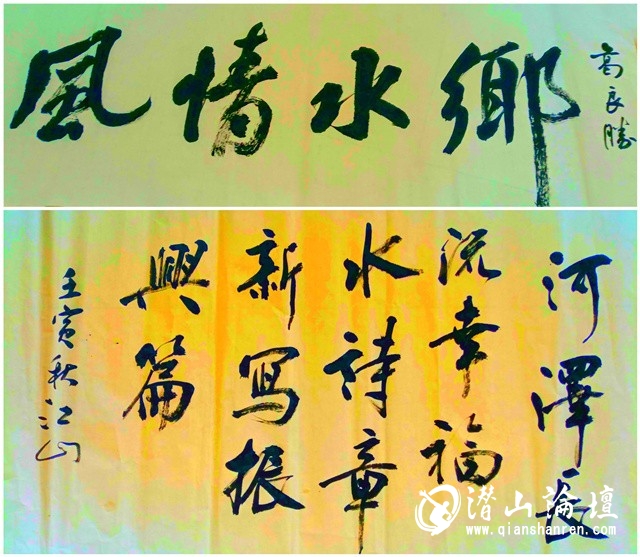 風情水鄉
高良勝
河澤長
流幸福
水詩章
新寫振
興篇
壬寅秋江山
潜山論壇
www.qianshanren.com